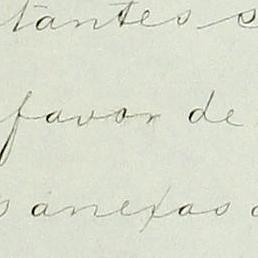 tantes s
favor de
s anexas a